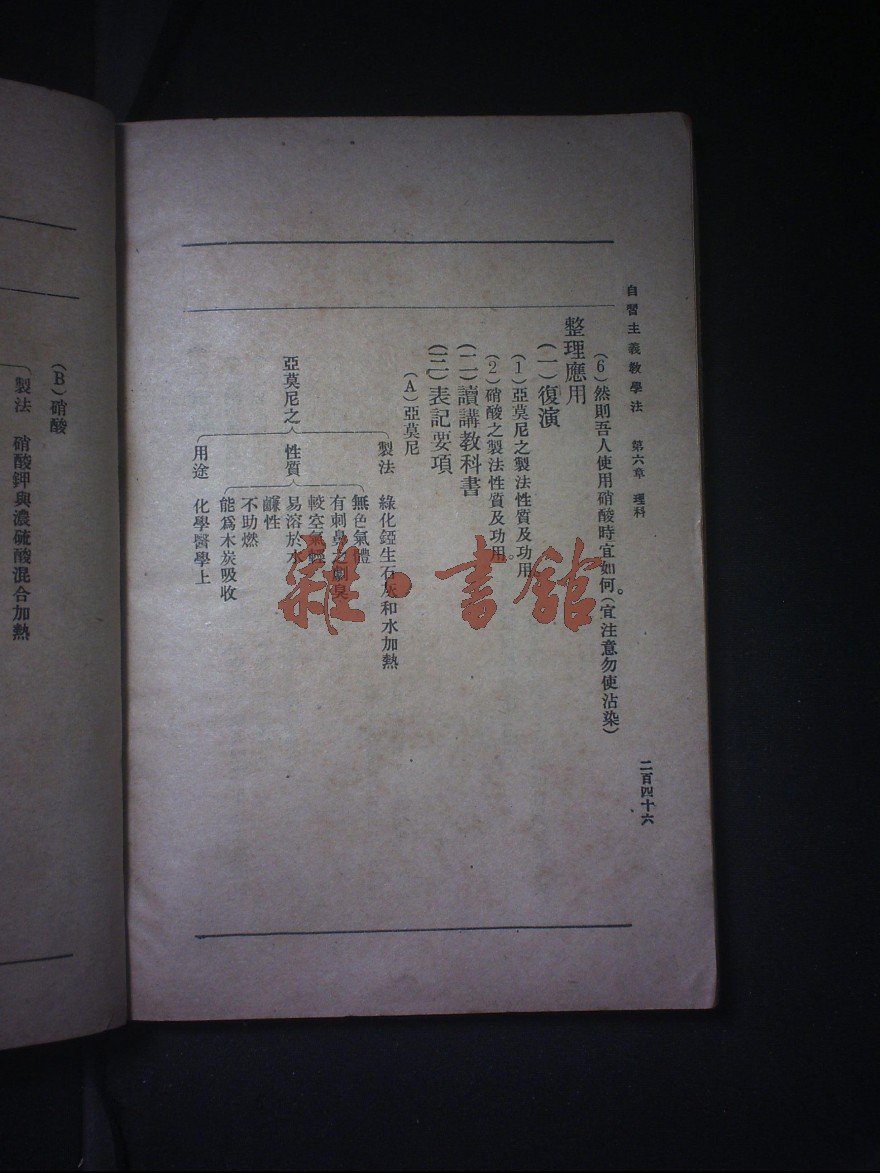 自習主義教學法　第六章　理科
二百四十六
（6）然則吾人使用硝酸時宜如何。（宜注意勿使沾染）
整理應用
（一）復演
（1）亞莫尼之製法性質及功用。
（2）硝酸之製法性質及功用。
（二）讀講教科書
（三）表記要項
（A）亞莫尼
亞莫尼之
製法　綠化錏生石灰和水加熱
性質
無色氣體
有刺鼻之劇臭
較空氣輕
易溶於水
鹹性
不助燃
能爲木炭吸收
用途　化學醫學上
（B）硝酸
製法　硝酸鉀與濃硫酸混合加熱
雜·書館